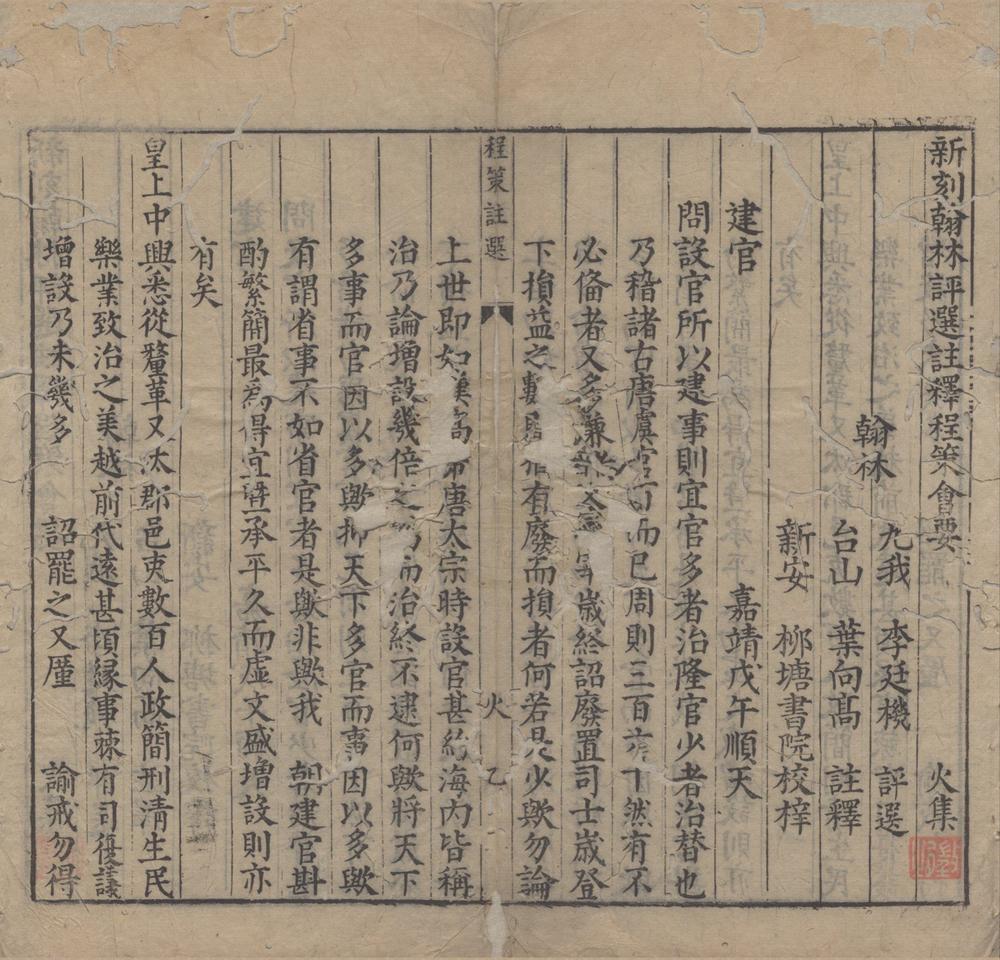 新刻翰林評選註釋程策會要 火集
翰林 九我 李廷機 評選
台山 葉向高 註釋
新安 栁塘書院校梓
建官 嘉靖戊午順天
問設官所以建事則宜官多者治隆官少者治替也
乃稽諸古唐虞官百而已周則三百六十然有不
必俻者又多兼 歲終詔廢置司士歲登
下損益之數 有廢而損者何若是少歟勿論
上世即如漢高帝唐太宗時設官甚約海内皆稱
治乃論增設幾倍之 而治終不逮何歟將天下
多事而官因以多歟抑天下多官而事因以多歟
有謂省事不如省官者是歟非歟我 朝建官斟
酌繁簡最爲得宜曁承平久而虛文盛增設則亦
有矣
皇上中興悉從釐革又汰郡邑吏數百人政簡刑清生民
樂業致治之美越前代遠甚頃縁事棘有司復議
增設乃未幾多 詔罷之又厪 諭戒勿得
程策註選 火 乙